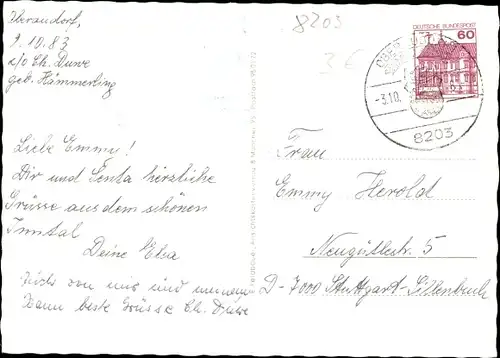 Oberaudorf,
9.10.83
c/o Ch. Duwe
geb. Hämmerling
Liebe Emmy!
Dir und Senta herzliche
Grüsse aus dem schönen
Inntal
Deine Elsa
Auch von mir und meinem
Mann beste Grüsse Ch. Duwe
8203
3€
DEUTSCHE BUNDESPOST
60
OBER
-3.10.
8203
Frau
Emmy Herold
Neugütlestr. 5
D-7000 Stuttgart-Sillenbuch